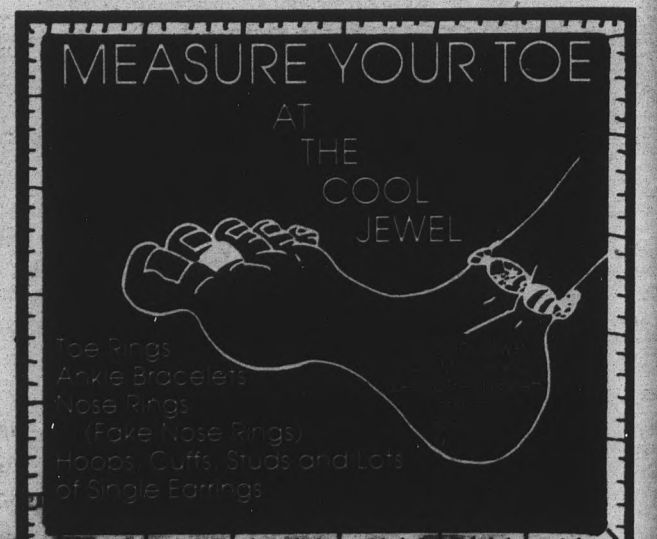 MEASURE YOUR TOE
AT
THE
COOL
JEWEL
Toe Rings
Ankle Bracelets
Nose Rings
(Fake Nose Rings)
Hoops, Cuffs, Studs and Lots
of Single Earrings